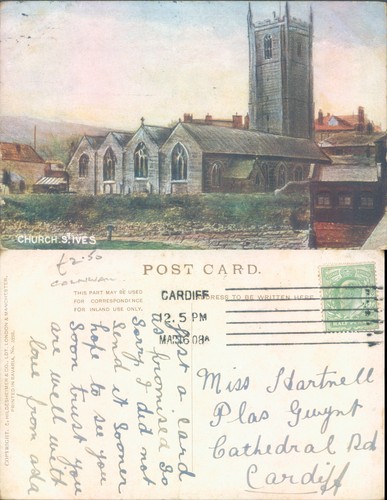 CHURCH. ST. IVES
£2.50
POST CARD.
THIS PART MAY BE USED
FOR CORRESPONDENCE
FOR INLAND USE ONLY.
ADDRESS TO BE WRITTEN HERE
CARDIFF
12.5 PM
08
HALFPENNY
Just a card
as promised so
Sorry I did not
Send it Sooner
hope to see you
Soon trust you
are well with
love from ada
Miss Hartnell
Plas Gwynt
Cathedral Rd
Cardiff
COPYRIGHT. E. HILDESHEIMER & CO., LTD. LONDON & MANCHESTER.
PRINTED IN BAVARIA.